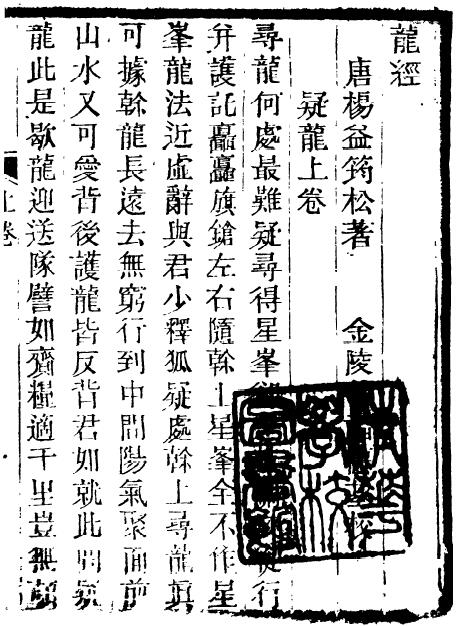 龍經
唐楊益筠松著 金陵校
疑龍上卷
尋龍何處最難疑尋得星峯從行
幷護託矗矗旗鎗左右隨幹上星峯全不作星
峯龍法近虛辭與君少釋狐疑處幹上尋龍眞
可據幹龍長遠去無窮行到中間陽氣聚面前
山水又可愛背後護龍皆反背君如就此問疑
龍此是歇龍迎送隊譬如齎糧適千里豈無頓
上卷
清華學校圖書館